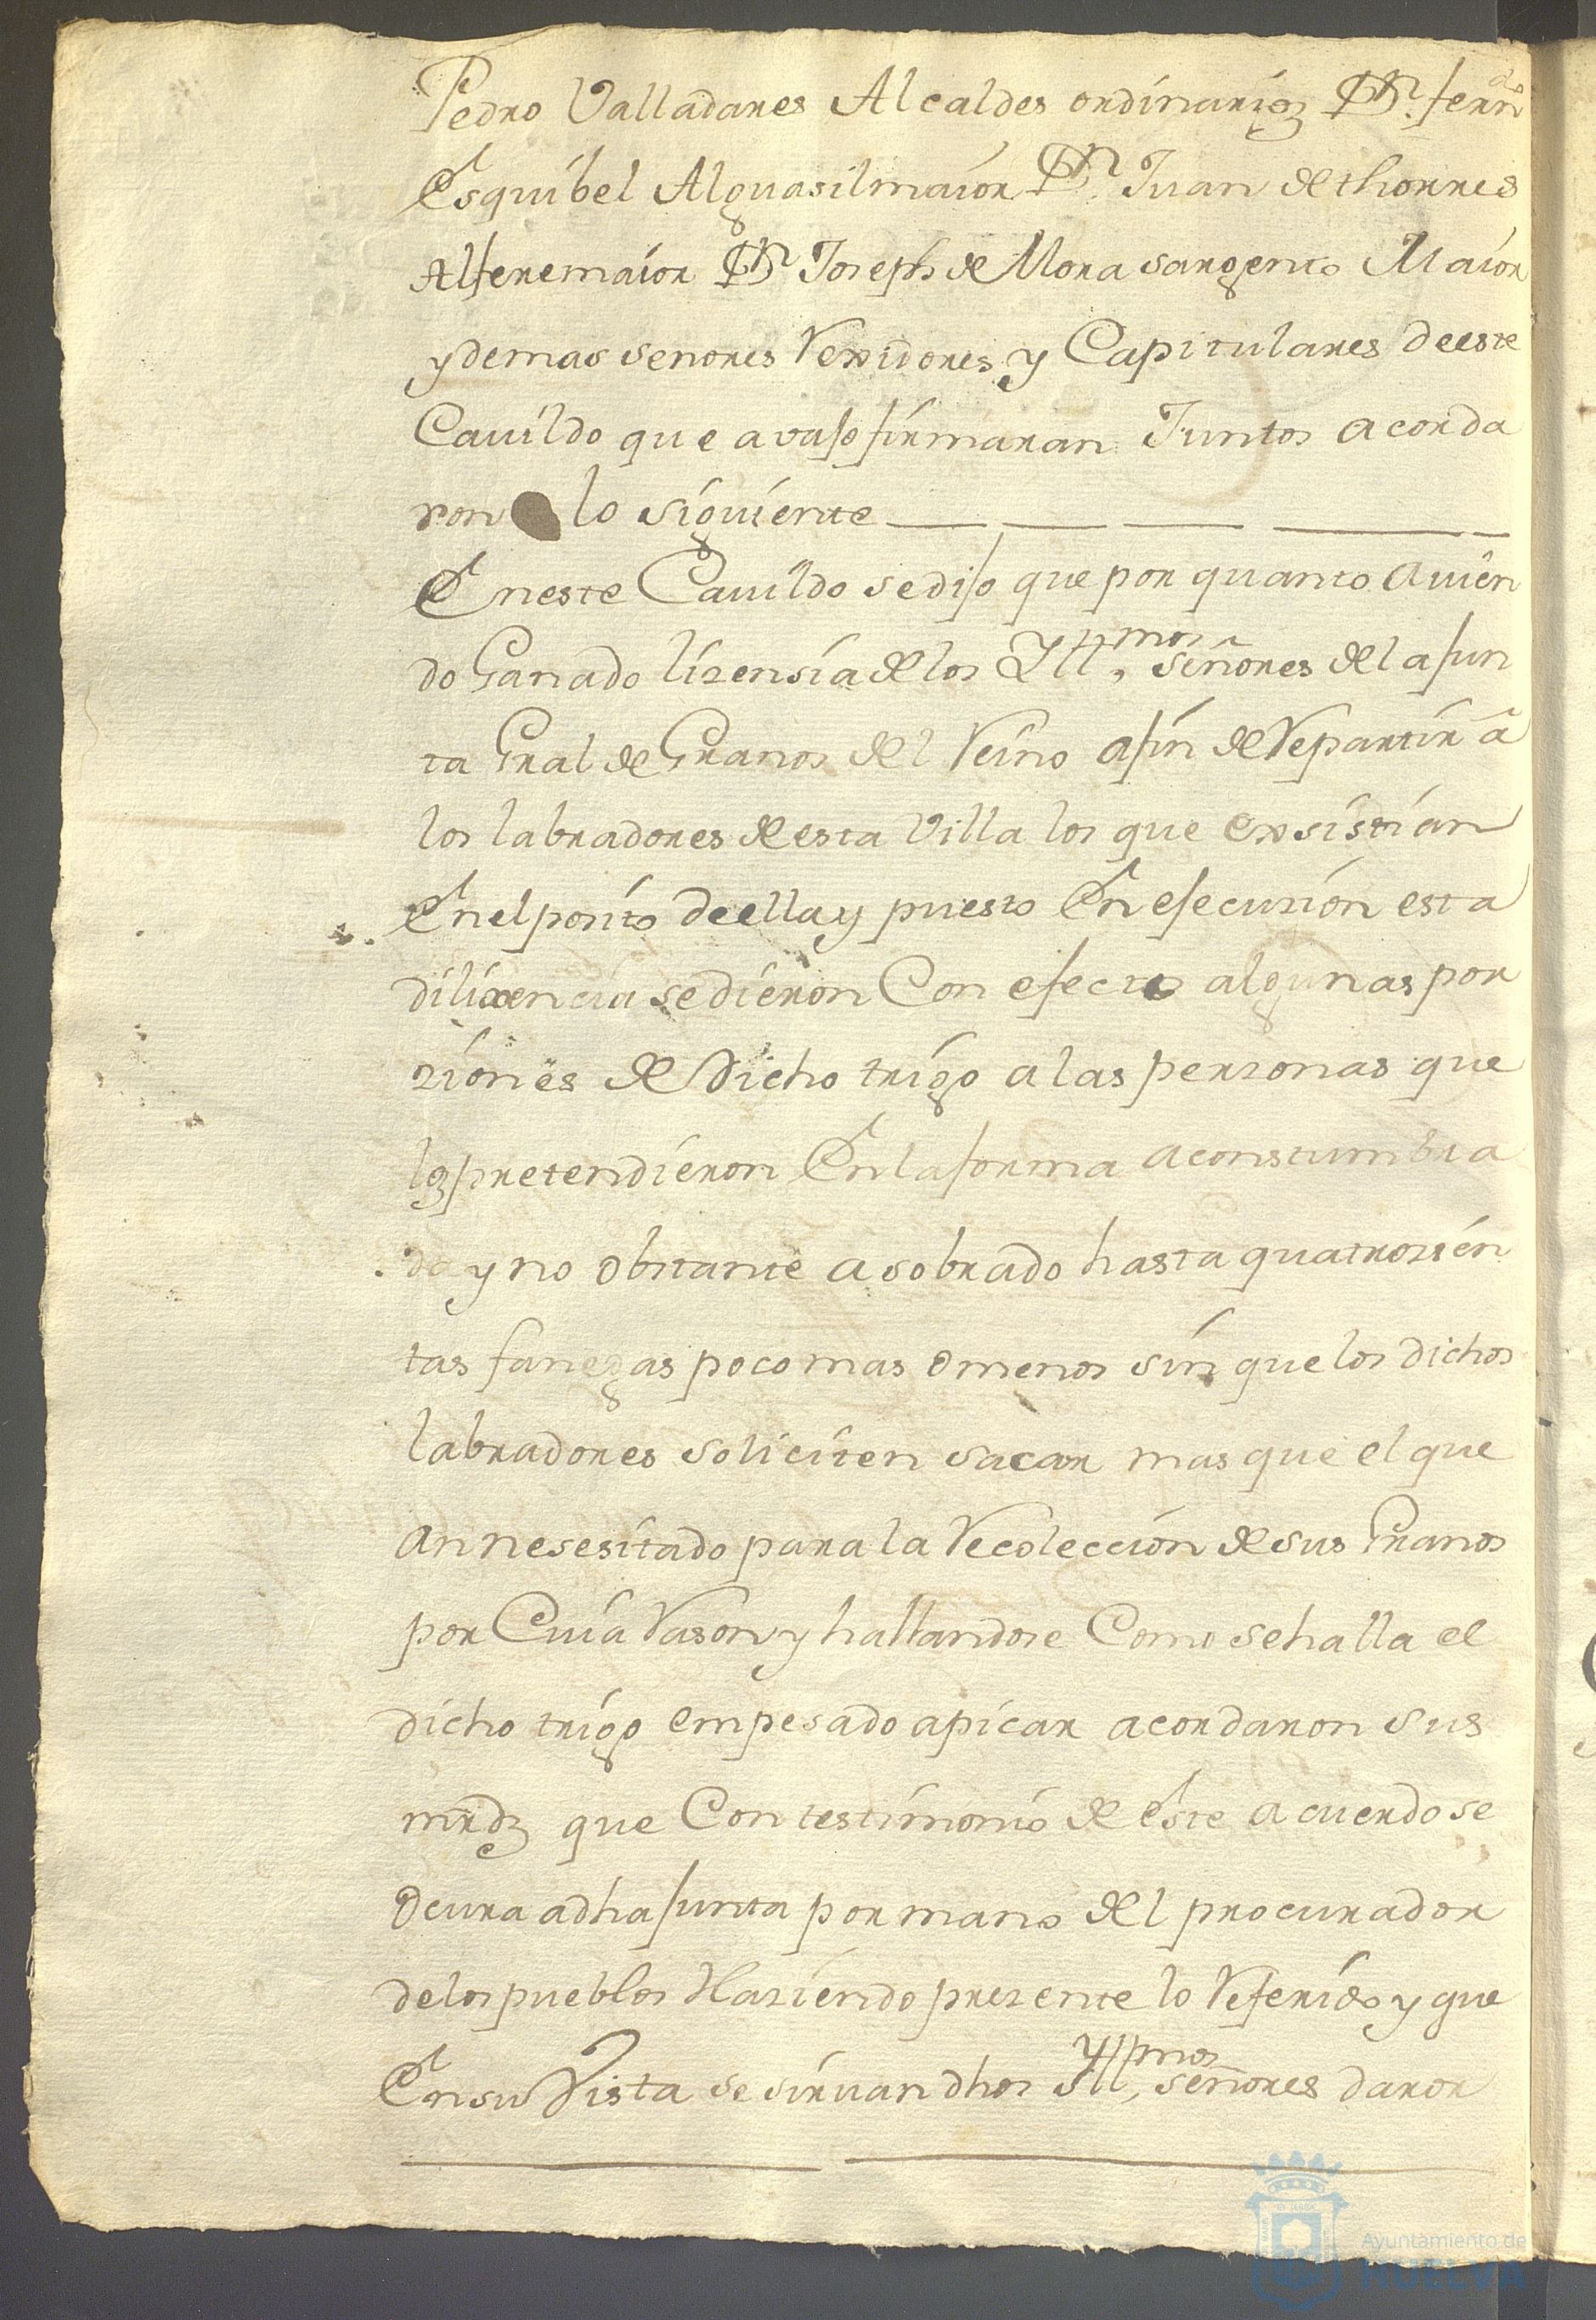 Pedro Valladares Alcaldes ordinarios Dn. ferndo
Esquibel Alguasilmaior Dn. Juan dethorres
Alferemaior Dn Joseph de Mora sargento Maior
y demas senores Rexidores y Capitulares deeste
Cauildo que avajo firmaran Juntos acorda
ron lo siguiente
En este Cauildo se dijo que por quanto auien
do Ganado lizensia de los Yllmos señores de la Jun
ta Gral de Granos del Reino afin de Repartir â
los labradores de esta Villa los que exsistian
En el posito deella y puesto En ejecuzion esta
dilixencia se dieron Con efecto algunas por
ziones de Dicho trigo a las perzonas que
lo pretendieron En la forma aconstumbra
da y no obstante a sobrado hasta quatrozien
tas fanegas poco mas o menos sin que los dichos
labradores soliciten sacar mas que el que
an nesesitado para la Recoleccion de sus Granos
por Cuia Rason y hallandose Como se halla el
dicho trigo empesado apicar acordaron sus
mrds que Con testimonio de éste acuerdo se
Ocura a dha Junta por mano del procurador
de los pueblos Haziendo prezente lo Referido y que
En su Vista se siruan dhos Yllmos señores dar or
Ayuntamiento de
HUELVA